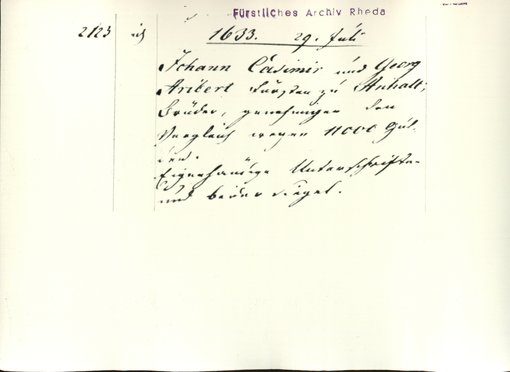 Fürstliches Archiv Rheda
2123 1633. 29. Juli
Johann Casimir und Georg
Aribert Fürsten zu Anhalt,
Brüder, genehmigen den
Vergleich wegen 11000 Gul-
den.
Eigenhändige Unterschriften
und beider Siegel.